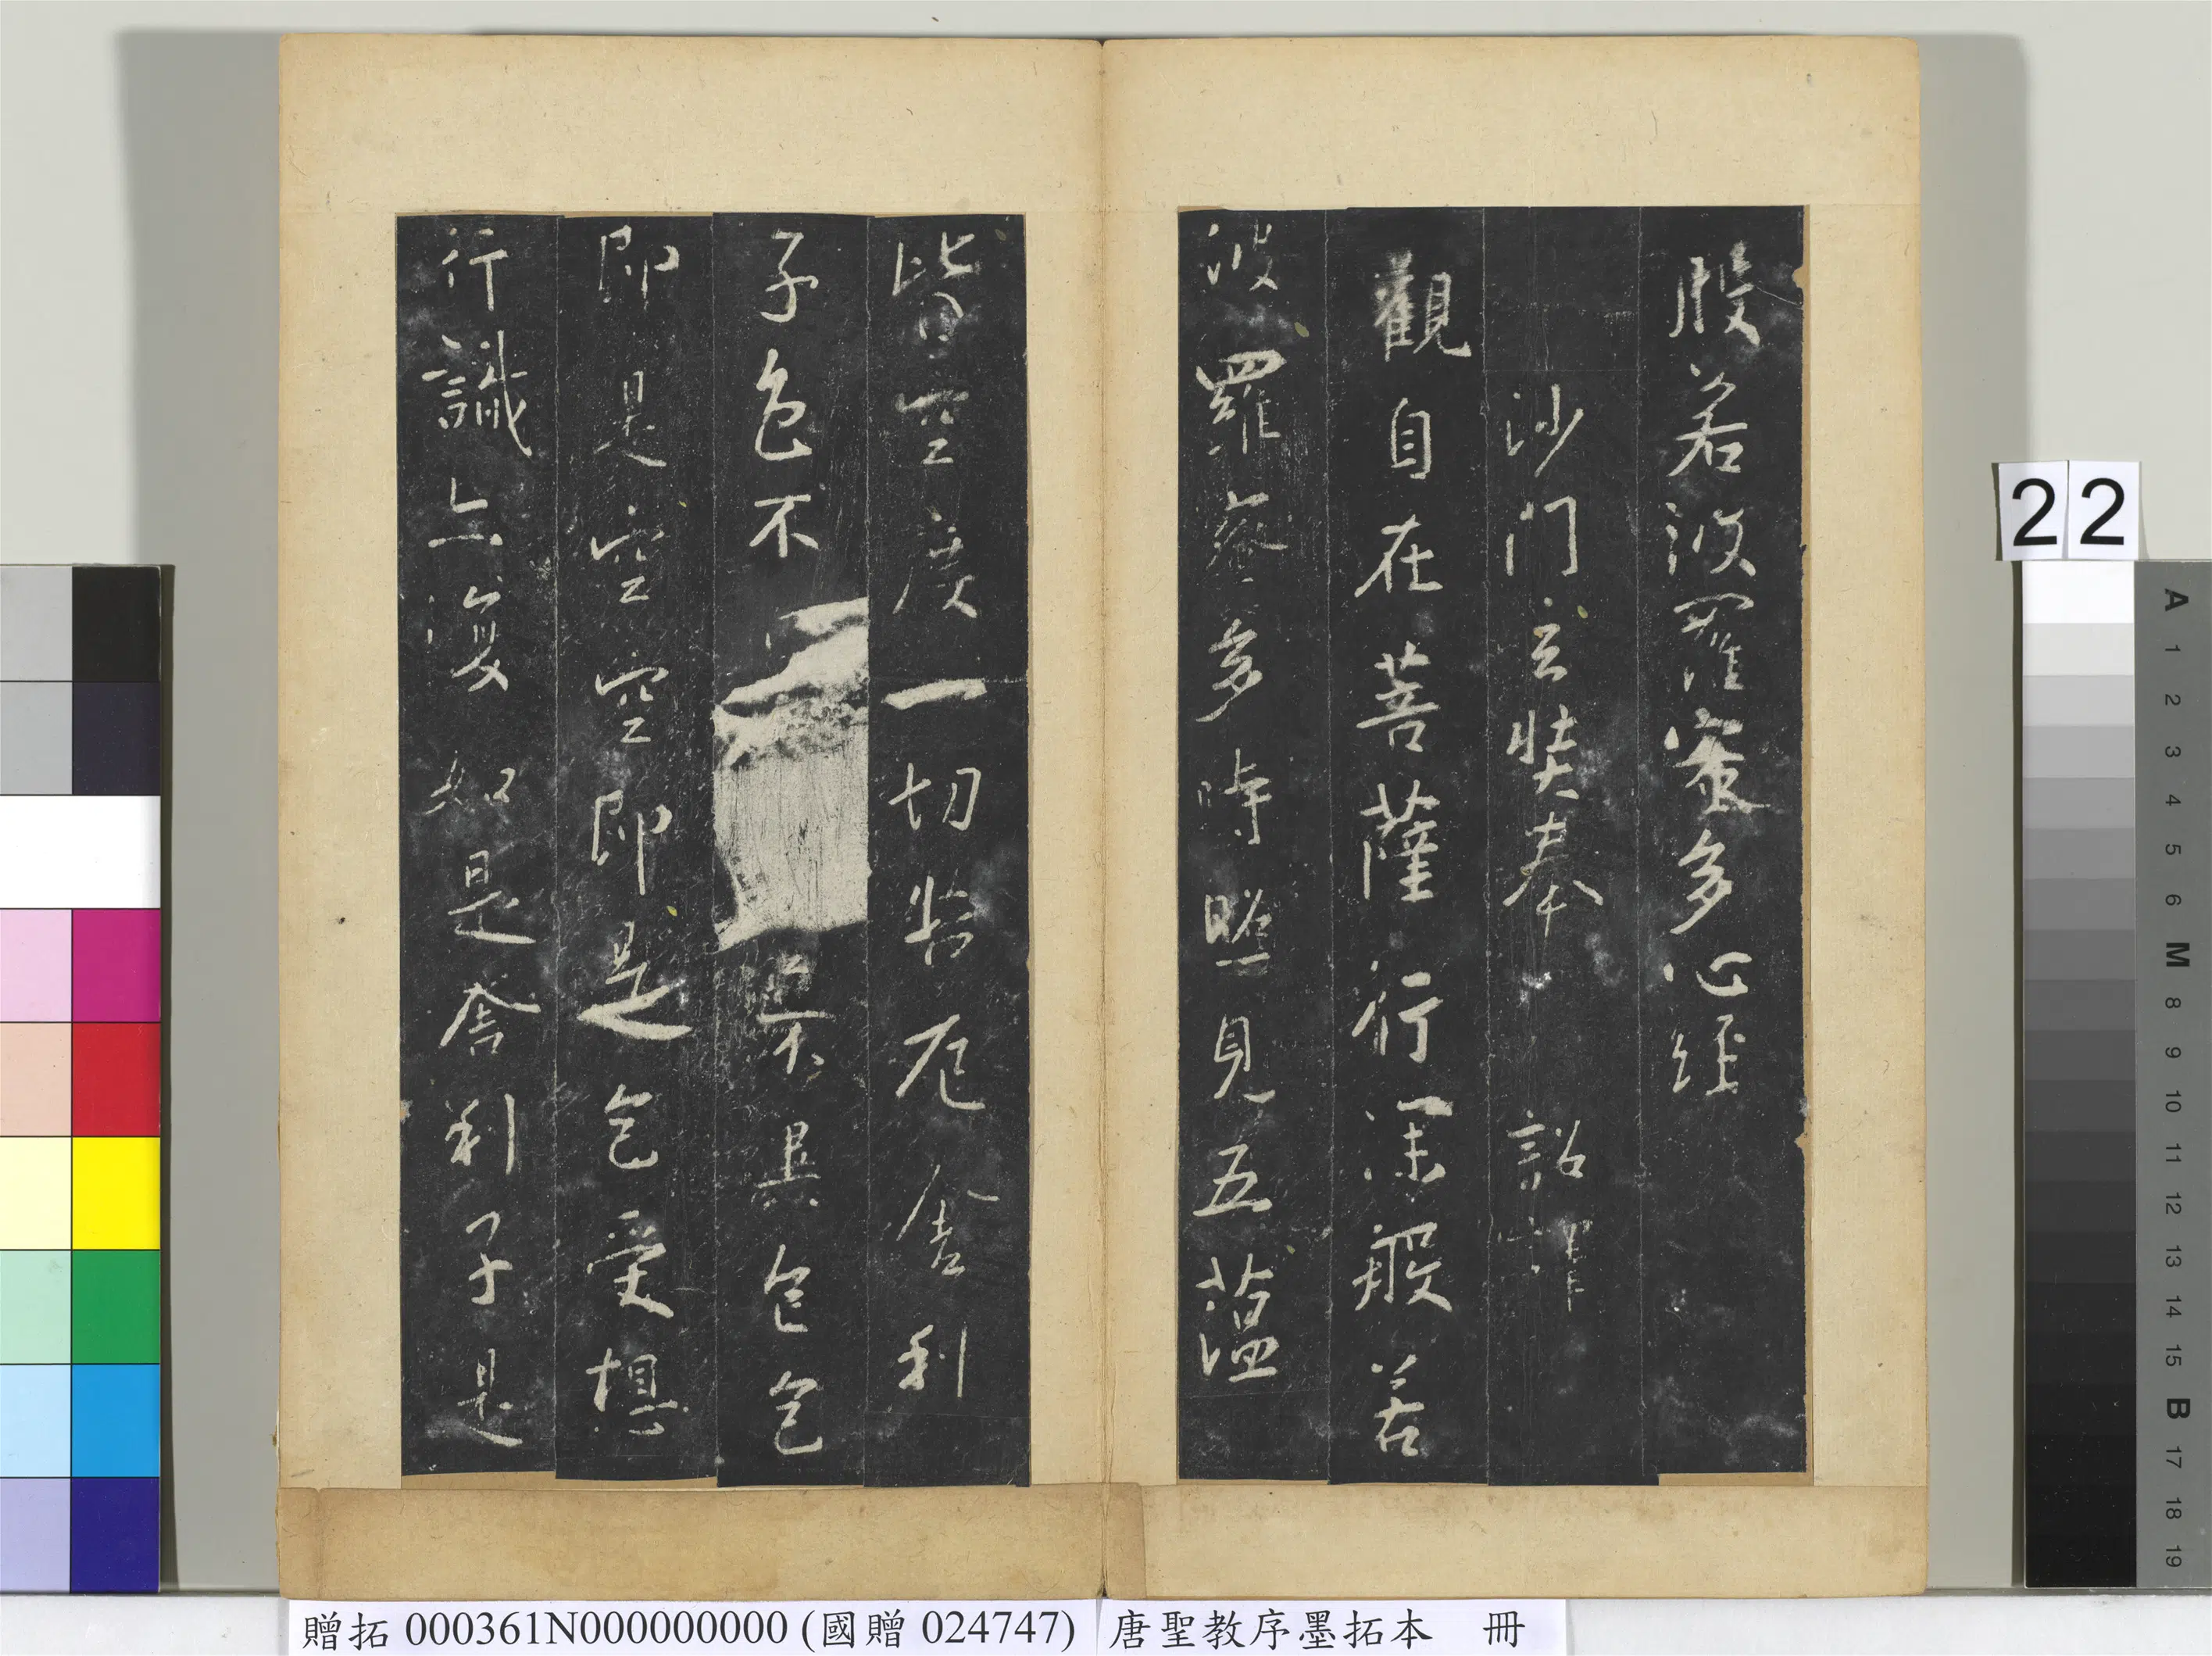 般若波羅蜜多心經
沙門玄奘奉 詔譯
觀自在菩薩行深般若
波羅蜜多時照見五蘊
皆空度一切苦厄舍利
子色不 不異色色
即是空空即是色受想
行識亦復如是舍利子是
22
A 1 2 3 4 5 6 M 8 9 10 11 12 13 14 15 B 17 18 19
贈拓 000361N000000000 (國贈 024747) 唐聖教序墨拓本 冊